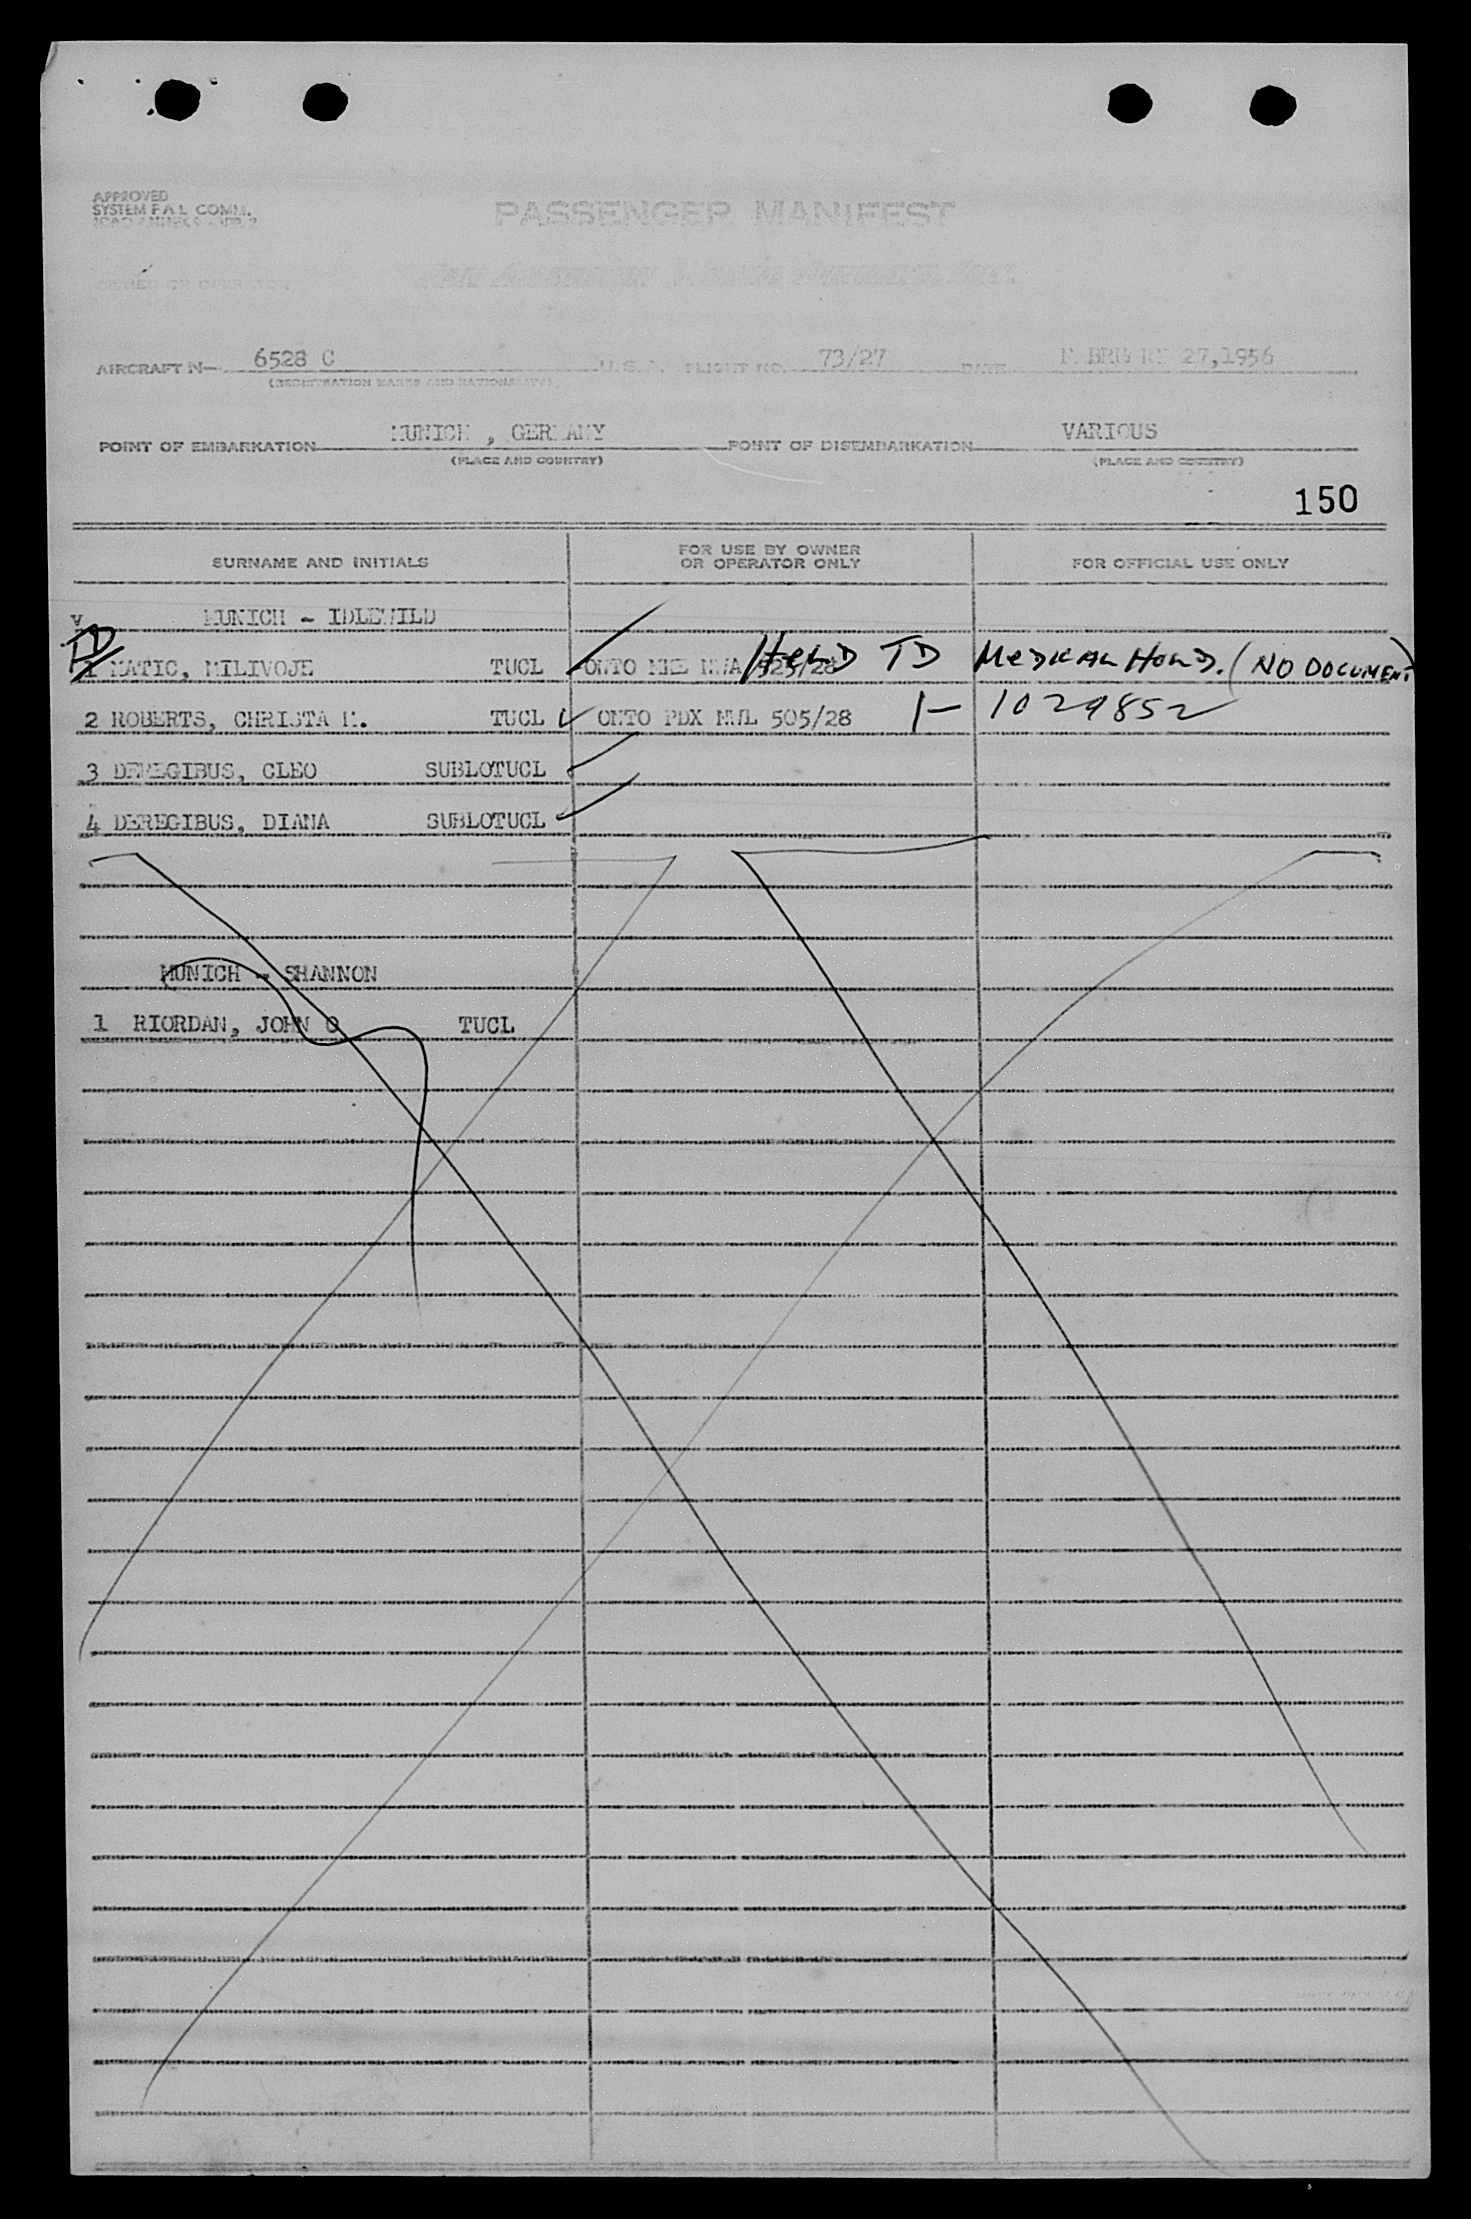 APPROVED
SYSTEM F.A.L. COMM.
PASSENGER MANIFEST
AIRCRAFT N— 6528 C U.S.A. FLIGHT NO. 73/27 DATE 27,1956
(REGISTRATION MARKS AND NATIONALITY)
POINT OF EMBARKATION MUNICH , GERMANY POINT OF DISEMBARKATION VARIOUS
(PLACE AND COUNTRY) (PLACE AND COUNTRY)
150
SURNAME AND INITIALS FOR USE BY OWNER OR OPERATOR ONLY FOR OFFICIAL USE ONLY
v MUNICH - IDLEWILD
TD 1 MATIC, MILIVOJE TUCL ONTO MKE NWA 323/28 HELD TD MEDICAL HOLD. (NO DOCUMENT)
2 ROBERTS, CHRISTA M. TUCL ONTO PDX NWL 505/28 1- 1029852
3 DEREGIBUS, CLEO SUBLOTUCL
4 DEREGIBUS, DIANA SUBLOTUCL
MUNICH - SHANNON
1 RIORDAN, JOHN O TUCL